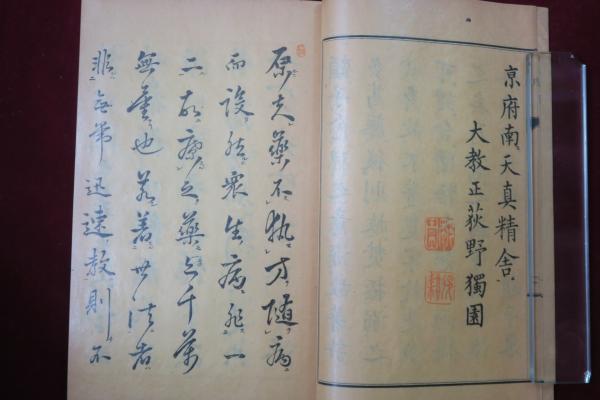 京府南天真精舍
大教正荻野獨園
原夫藥不執方隨病
而設然衆生病非一
二故療之藥亦千萬
無量也若着世法者
非無常迅速教則不